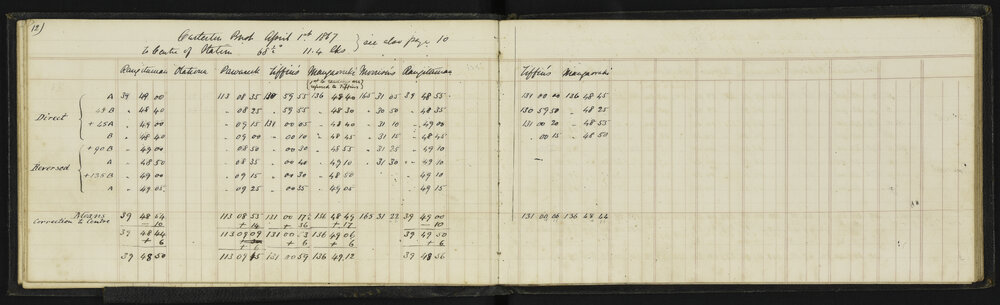 12)
Carterton Bush April 1st 1867 } see also page 10
to Centre of Station 65½° 11.4 lks
Rangitumau Otahoua Pawawek Tiffin's Maungaraki Morrison's Rangitumau
Tiffin's Maungaraki
Direct
A 39 49 00 113 08 35 130 59 55 136 48 40 165 31 05 39 48 55
131 00 00 136 48 45
B " 48 40 " 08 25 " 59 55 " 48 30 " 30 50 " 48 35
130 59 50 " 48 25
+45A " 49 00 " 09 15 131 00 05 " 48 40 " 31 10 " 49 00
131 00 20 " 48 55
B " 48 40 " 09 00 " 00 10 " 48 45 " 31 15 " 48 45
" 00 15 " 48 50
Reversed
+90B " 49 00 " 08 50 " 00 30 " 48 55 " 31 25 " 49 10
A " 48 50 " 08 35 " 00 40 " 49 10 " 31 30 " 49 10
+135B " 49 00 " 09 15 " 00 30 " 48 50 " 49 10
A " 49 05 " 09 25 " 00 35 " 49 05 " 49 15
Means 39 48 54 113 08 55 131 00 17½ 136 48 49 165 31 22 39 49 00
131 00 06 136 48 44
Correction to Centre - 10 + 14 + 36 + 17 - 10
39 48 44 113 09 09 131 00 53 136 49 06 39 48 50
+ 6 + 6 + 6 + 6 + 6
39 48 50 113 09 15 131 00 59 136 49 12 39 48 56